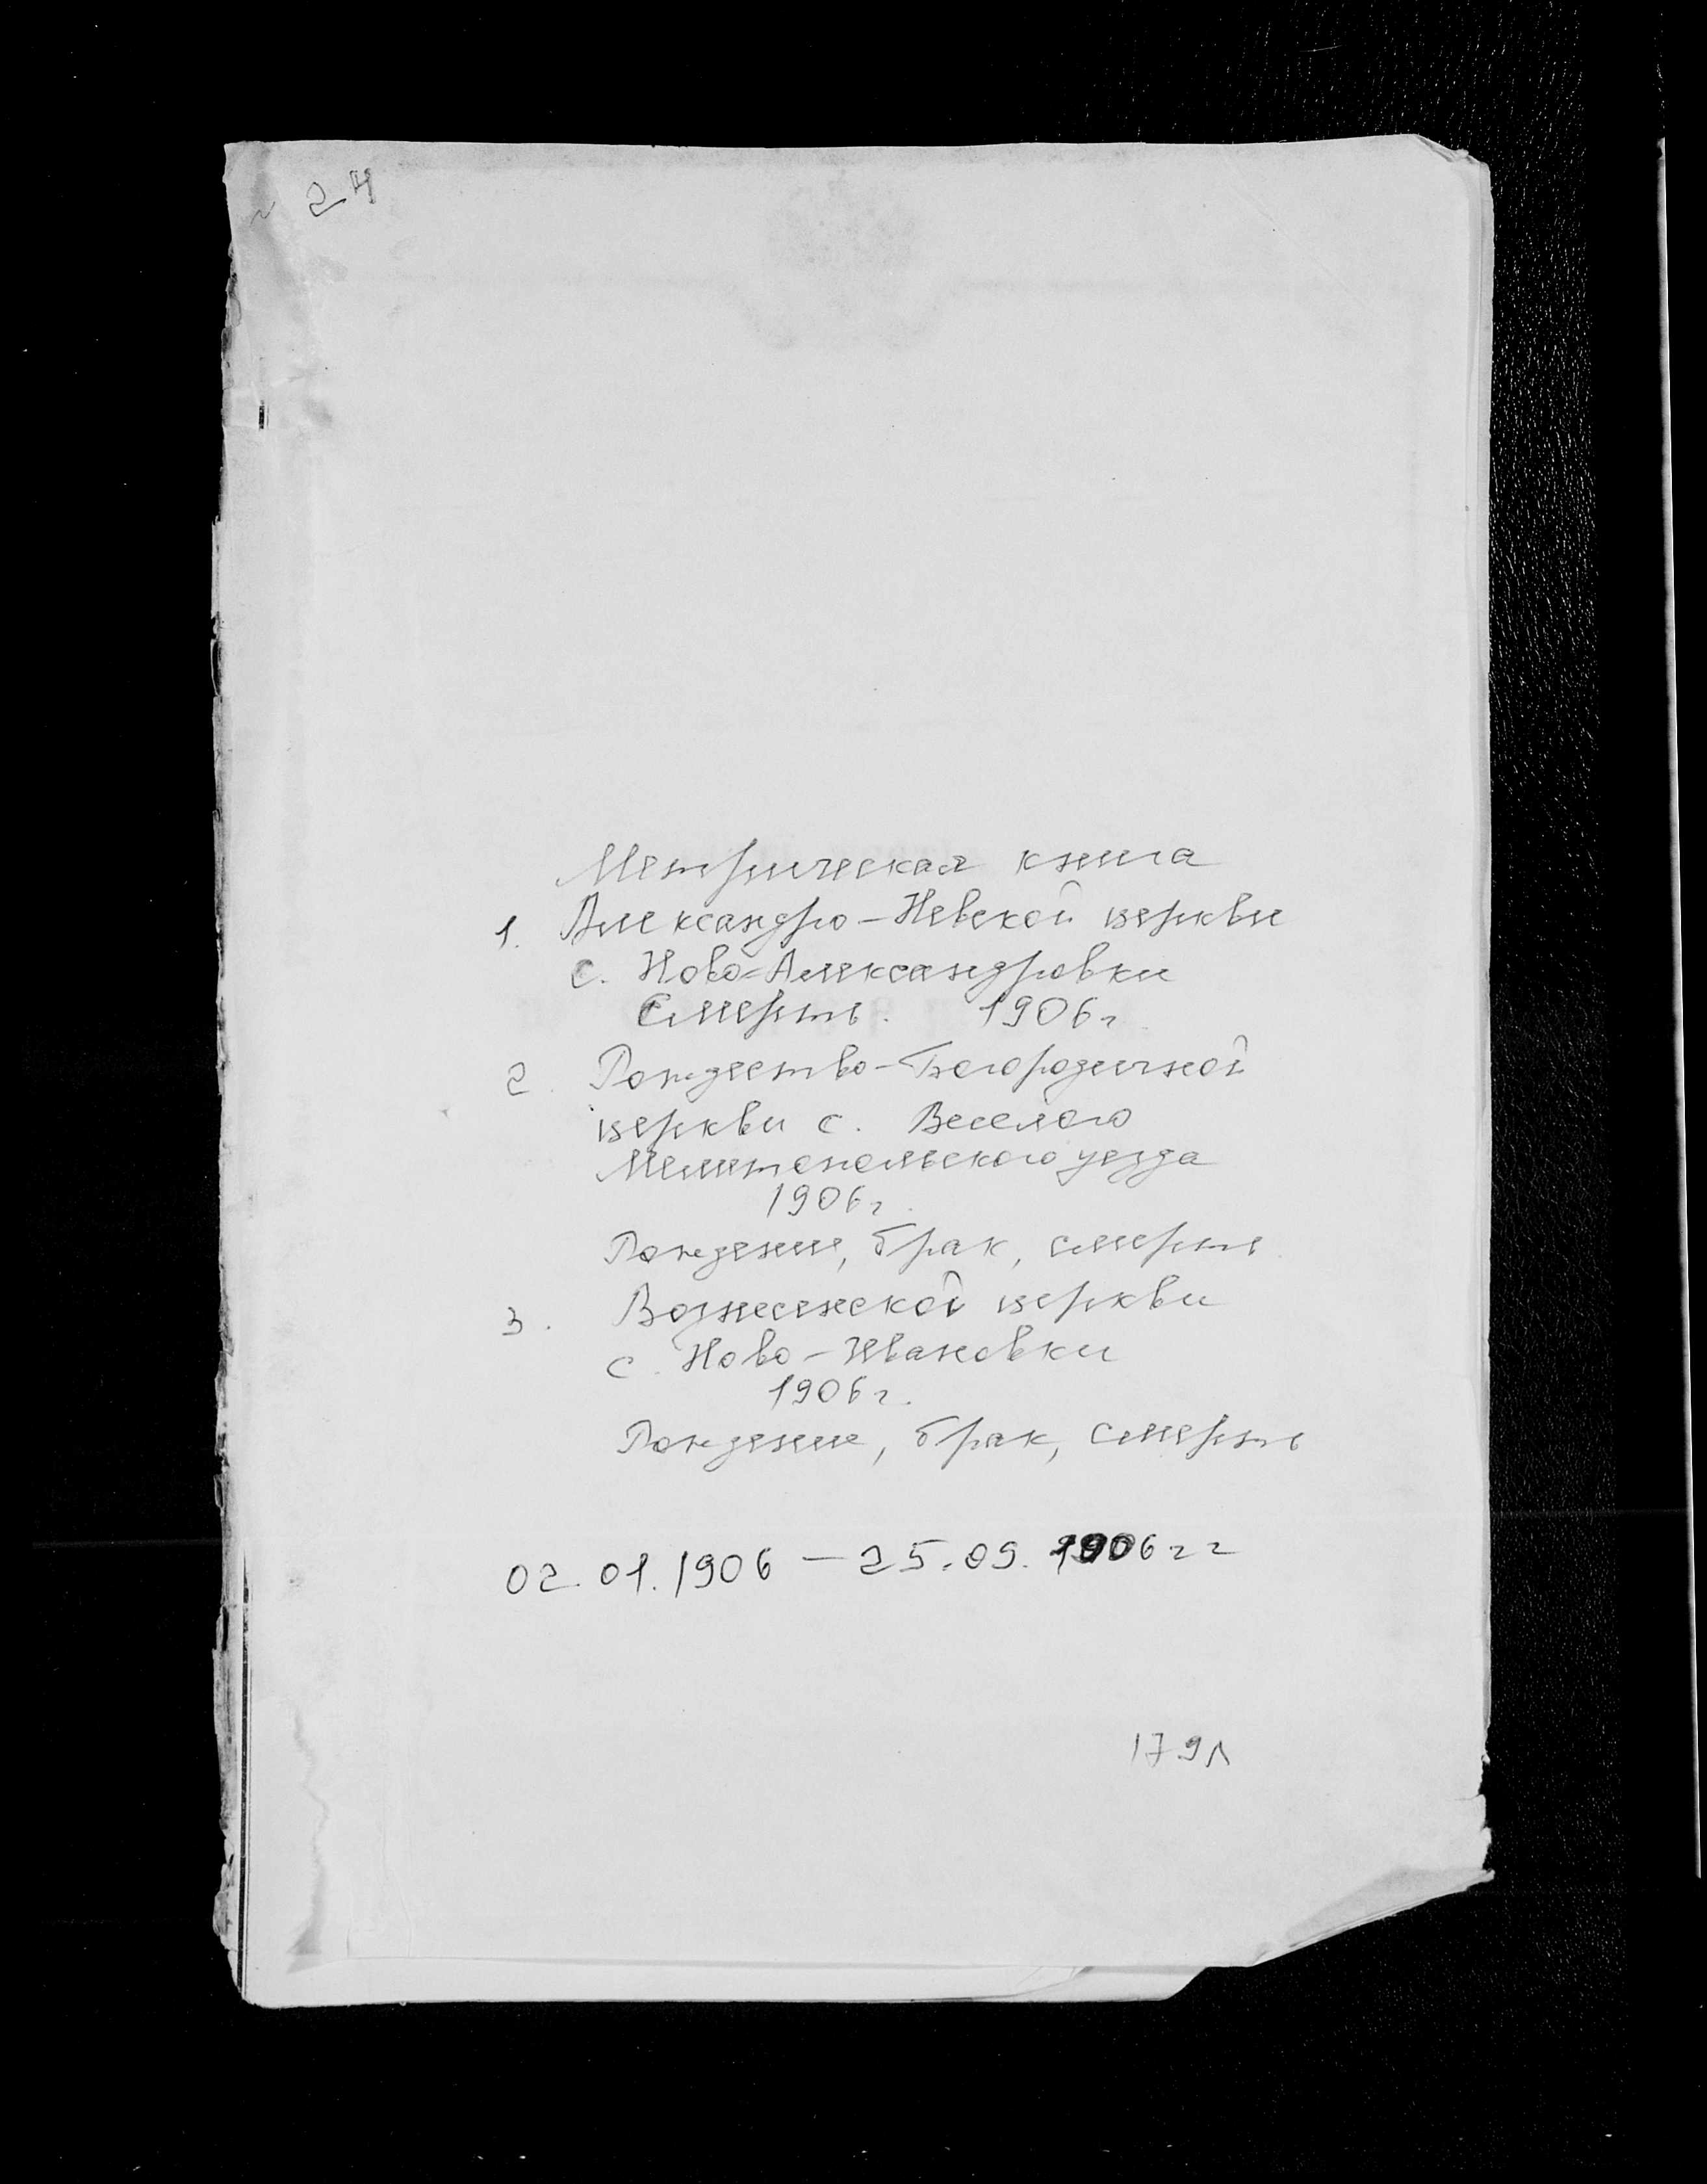 24
Метрическая книга
1. Александро-Невской церкви
с. Ново-Александровки
Смерть. 1906 г
2. Рождество-Богородичной
церкви с. Веселого
Мелитопольского уезда
1906 г.
Рождение, брак, смерть
3. Вознесенской церкви
с. Ново-Ивановки
1906 г.
Рождение, брак, смерть
02.01.1906 – 25.09.1906 г г
179 л